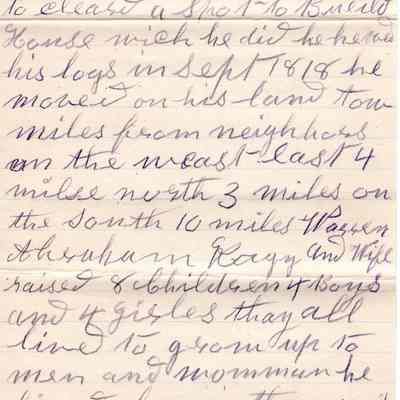 to cleard a spot to Build
House wich he did he hewd
his logs in sept 1818 he
moved on his land tow
miles from neighbors
on the weast east 4
milse north 3 miles on
the south 10 miles
Abraham Ragy and Wife
raised 8 Children 4 Boys
and 4 girles thay all
live to grom up to
men and womman he